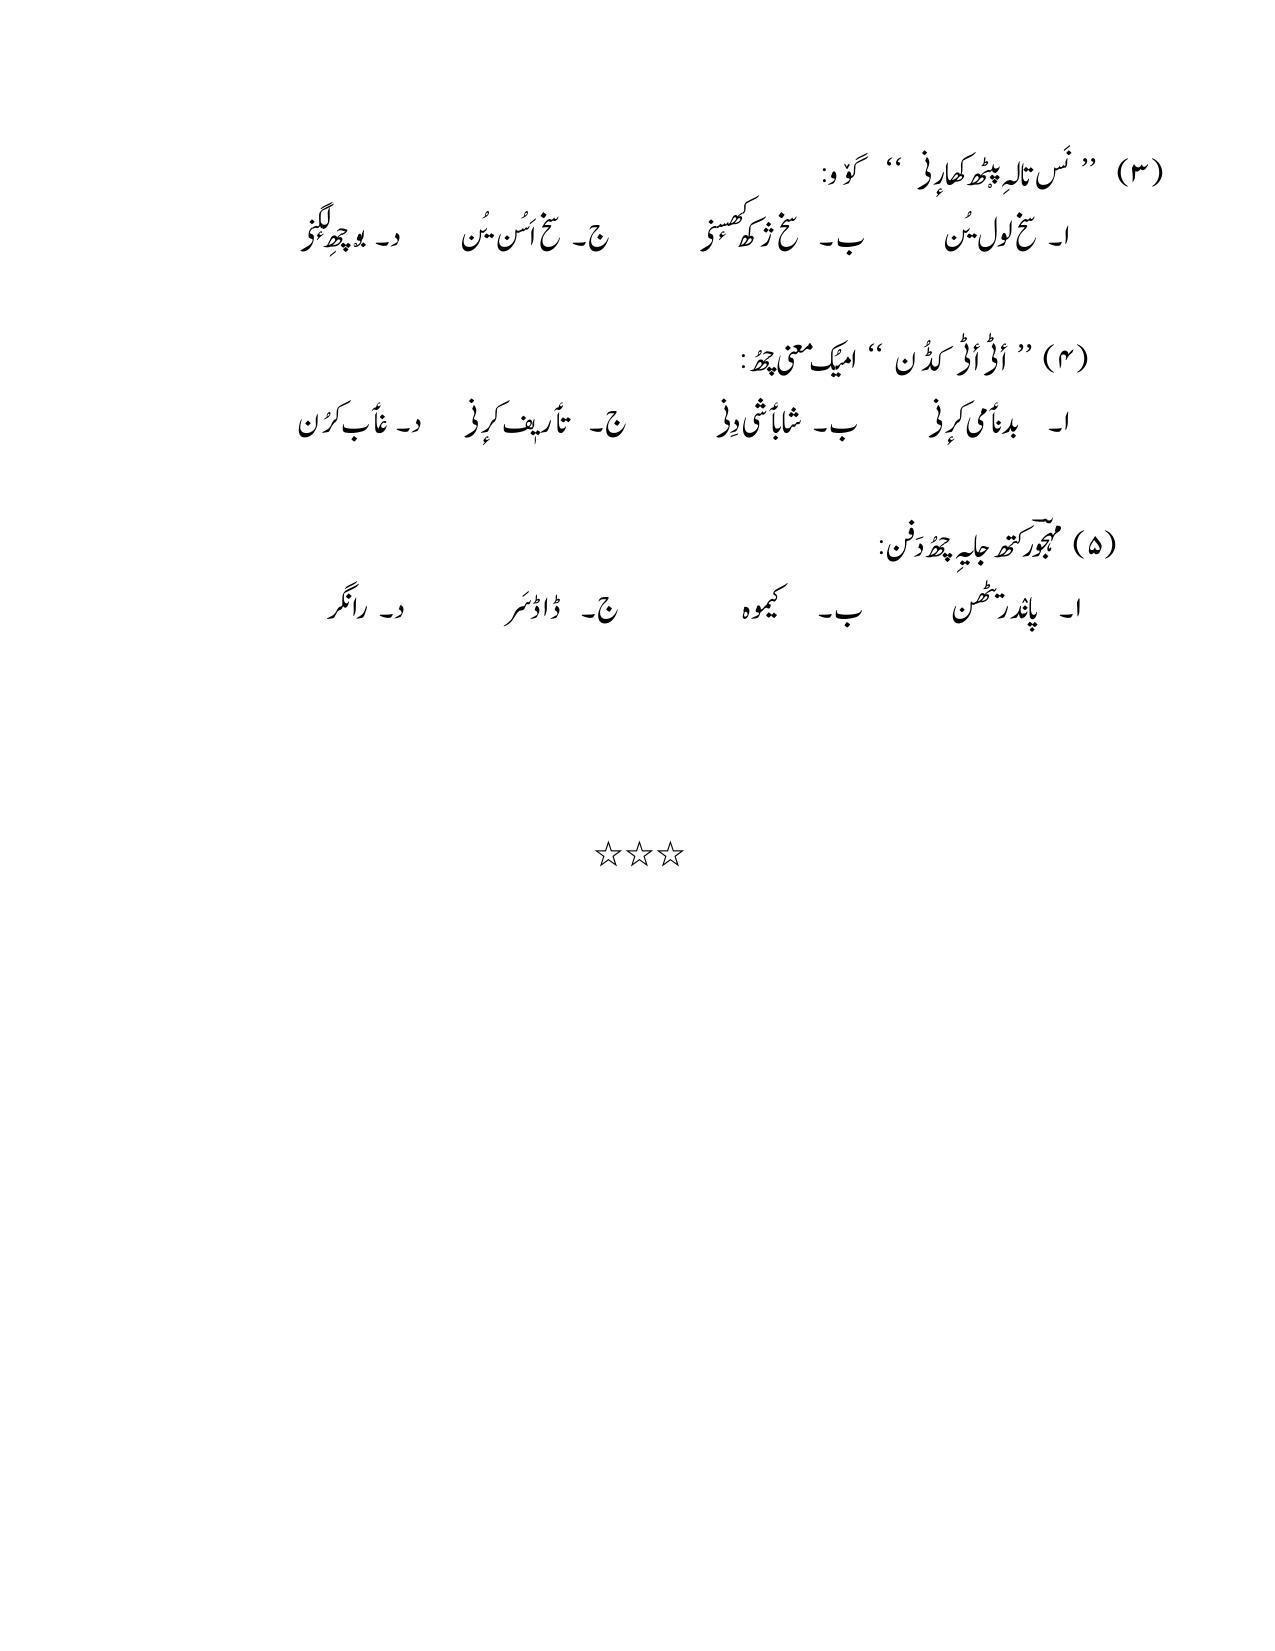 (۳) ” نَس تالہِ پیٚٹھ کھارٕنی “ گوٚو:
ا۔ سخ لول یُن ب۔ سخ ژکھ کھسٕنۍ ج۔ سخ اَسُن یُن د۔ بوچھِ لگٕنۍ
(۴) ” أٹۍ أٹۍ کڈُن “ امیُک معنی چھُ:
ا۔ بدنأمی کرٕنی ب۔ شابأشی دِنی ج۔ تأریٖف کرٕنی د۔ غأب کرُن
(۵) مہجورؔ کتھ جایہِ چھُ دَفن:
ا۔ پانٛدریٹھن ب۔ کیموہ ج۔ ڈاڈسَر د۔ رانگر
☆☆☆